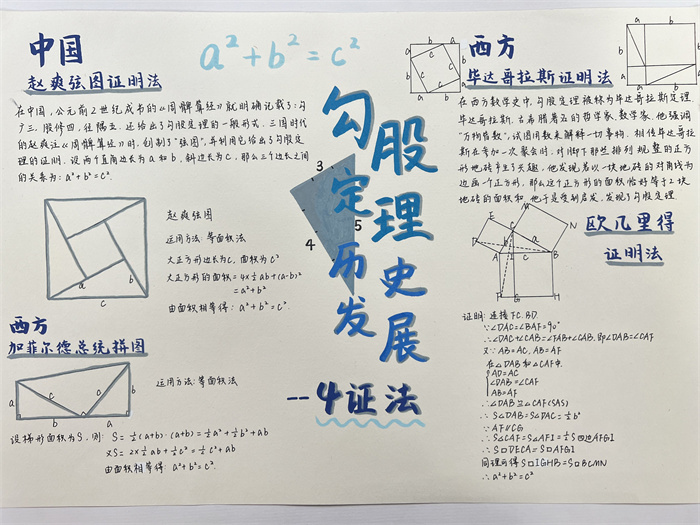 a²+b²=c²
勾股定理历史发展
--4证法
3
4
5
中国
赵爽弦图证明法
在中国,公元前2世纪成书的《周髀算经》就明确记载了:勾
广三,股修四,径隅五.还给出了勾股定理的一般形式.三国时代
的赵爽注《周髀算经》时,创制了"弦图",并利用它给出了勾股定
理的证明.设两个直角边长为a和b,斜边长为c,那么三个边长之间
的关系为:a²+b²=c².
a
b
c
赵爽弦图
运用方法:等面积法
大正方形边长为c,面积为c²
大正方形的面积=4×½ab+(a-b)²
=a²+b²
由面积相等得:a²+b²=c².
西方
加菲尔德总统拼图
a
c
b
c
b
a
运用方法:等面积法
设梯形面积为S,则:S=½(a+b)·(a+b)=½a²+½b²+ab
又S=2×½ab+½c²=½c²+ab
由面积相等得:a²+b²=c².
西方
毕达哥拉斯证明法
a
b
b
a
a
b
b
a
c
c
c
c
b
a
a
b
在西方数学史中,勾股定理被称为毕达哥拉斯定理
毕达哥拉斯,古希腊著名的哲学家、数学家.他强调
"万物皆数",试图用数来解释一切事物.相传毕达哥拉
斯在参加一次聚会时,对脚下那些排列规整的正方
形地砖产生了兴趣,他发现若以一块地砖的对角线为
边画一个正方形,那么这个正方形的面积恰好等于2块
地砖的面积和.他于是受到启发,发现了勾股定理.
欧几里得
证明法
E
M
N
D
C
a
b
A
I
B
F
G
H
证明:连接FC.BD.
∵∠DAC=∠BAF=90°
∴∠DAC+∠CAB=∠FAB+∠CAB,即∠DAB=∠CAF
又∵AB=AC,AB=AF
在△DAB和△CAF中.
AD=AC
∠DAB=∠CAF
AB=AF
∴△DAB≌△CAF(SAS)
∴S△DAB=S△DAC=½b²
∵AF∥CG
∴S△CAF=S△AFI=½S四边AFGI
∴S□DECA=S□AFGI
同理可得S□IGHB=S□BCMN
∴a²+b²=c²